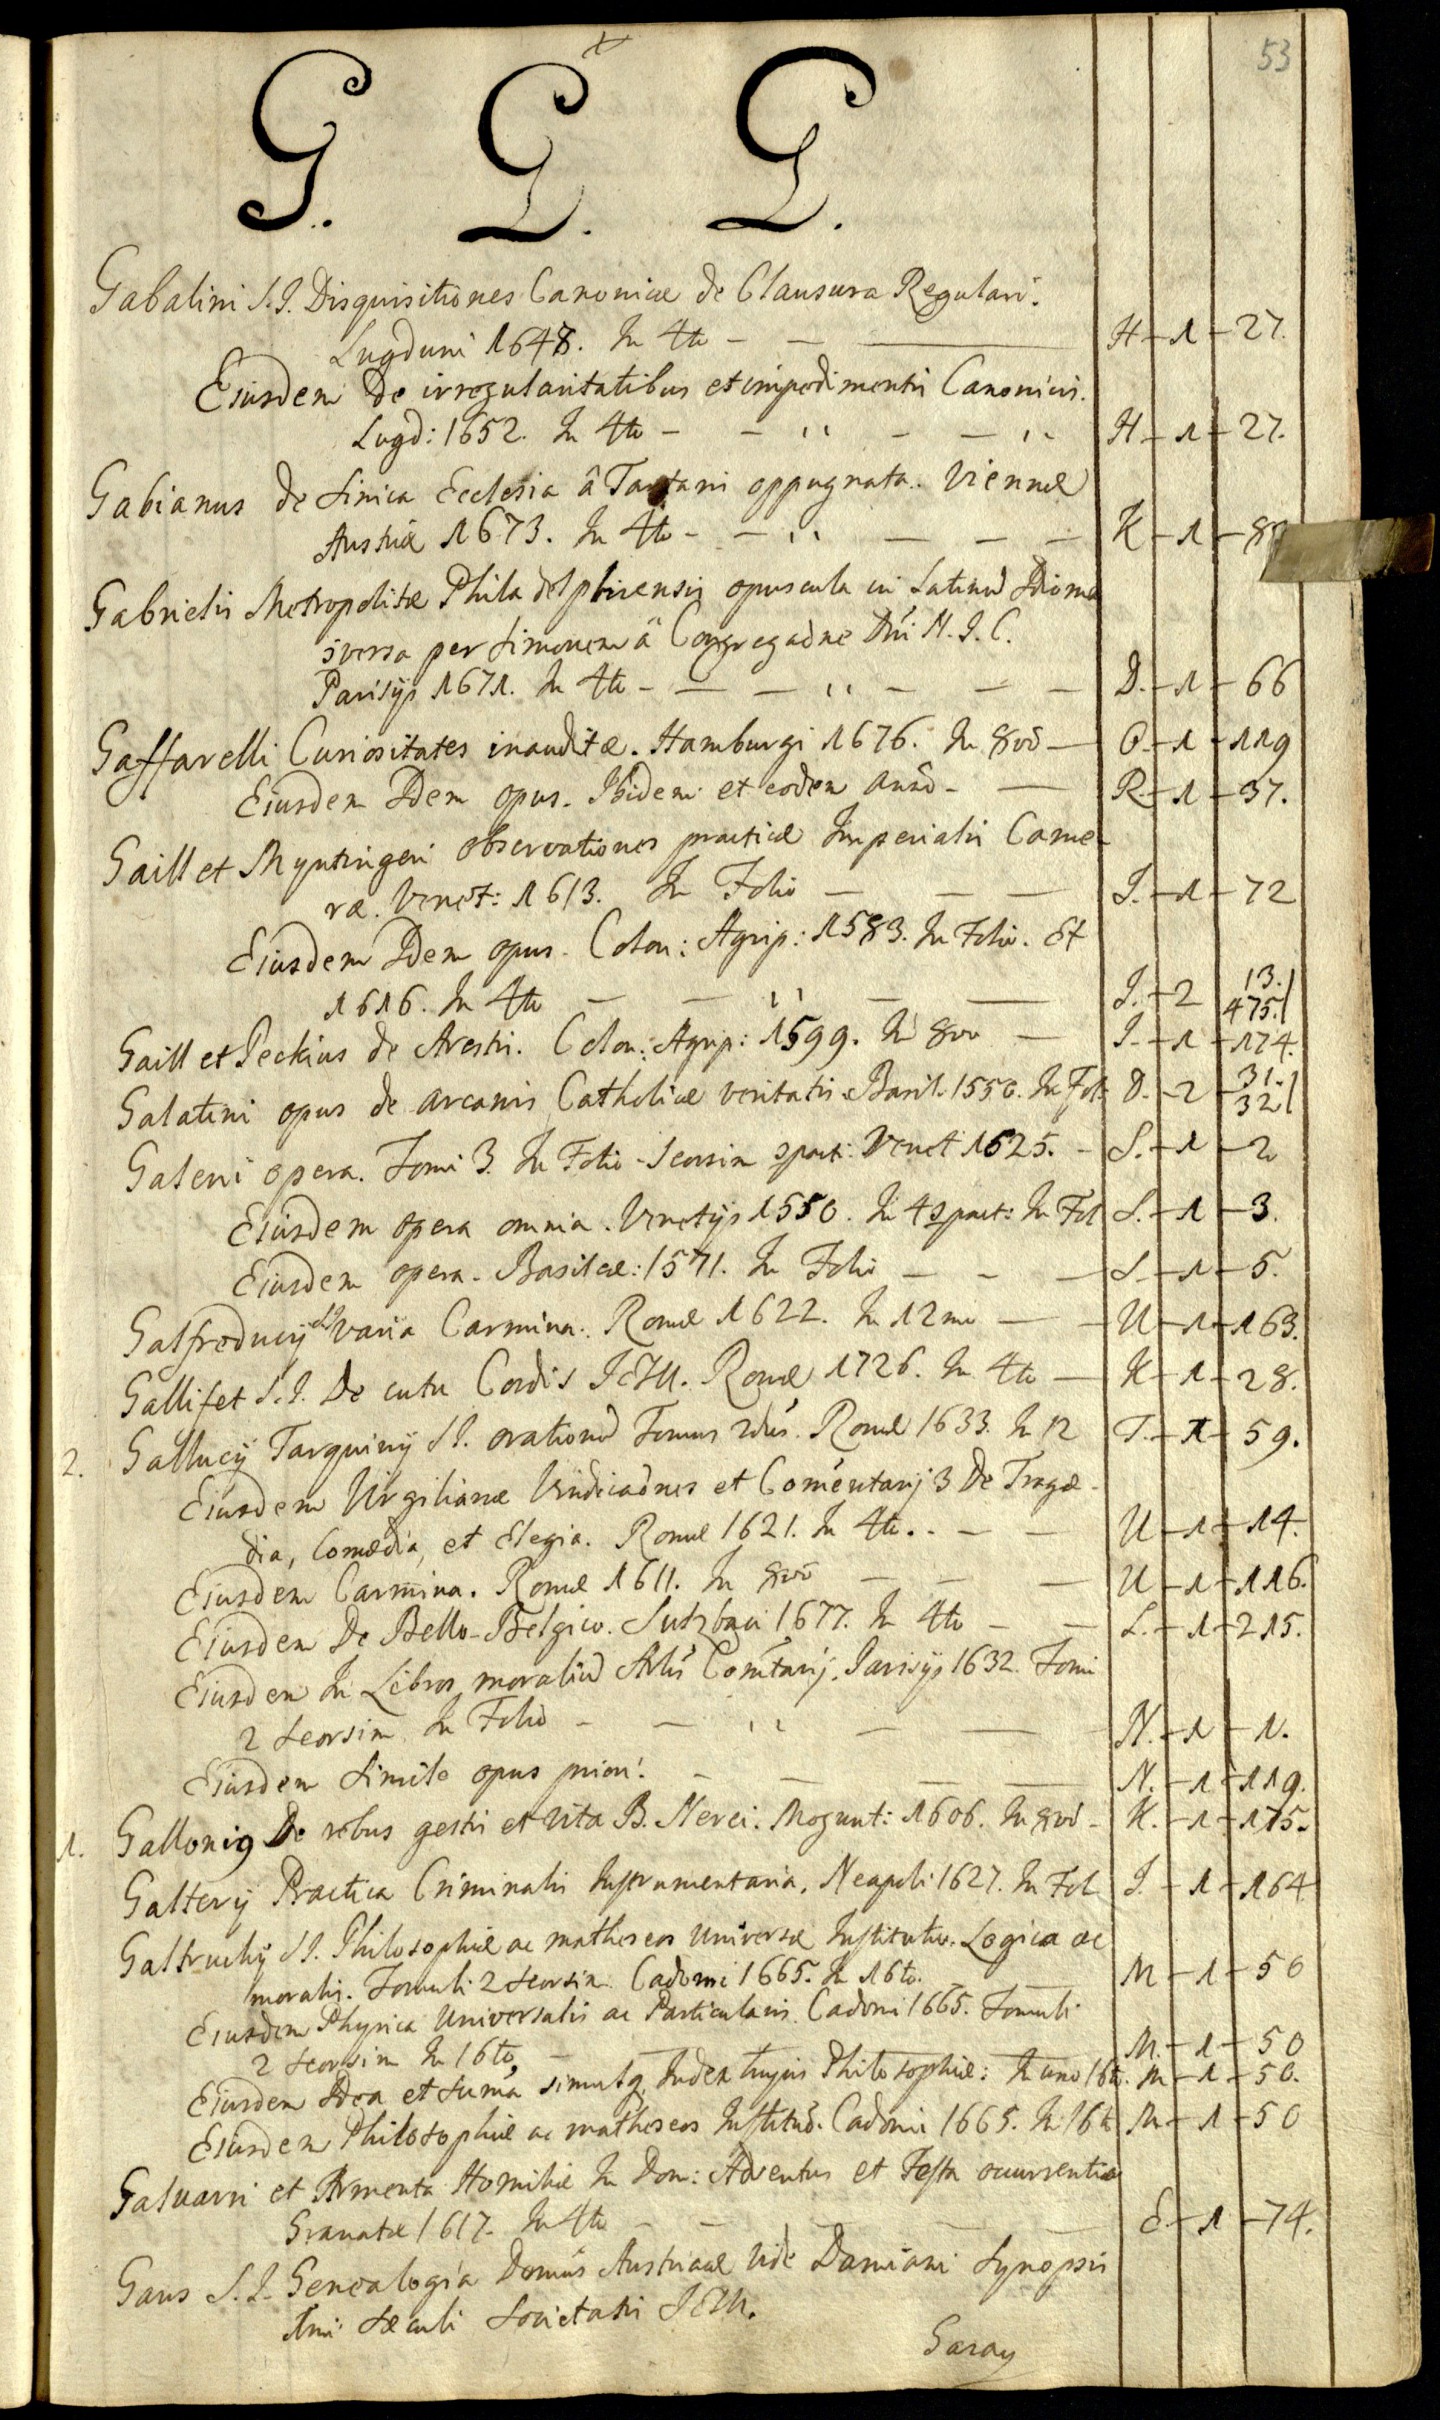 53
G. G. G.
Gabalini S.I. Disquisitiones Canonicæ de Clausura Regulari.
Lugduni 1648. In 4to — — H — 1 — 27.
Eiusdem De irregularitatibus et impedimentis Canonicis.
Lugd: 1652. In 4to — — " — — " H — 1 — 27.
Gabianus de Sinica Ecclesia â Tartaris oppugnata. Viennæ
Austriæ 1673. In 4to — — " — — — K — 1 —
Gabrielis Metropolitæ Philadelphiensis opuscula in Latinū Idioma
versa per Simonem â Congregaōne Dni N. I. C.
Parisijs 1671. In 4to — — — " — — — D. — 1 — 66
Gaffarelli Curiositates inauditæ. Hamburgi 1676. In 8vo — O. — 1 — 119
Eiusdem Idem opus. Ibidem et eodem anno — — R — 1 — 37.
Gaill et Mynsingeri observationes practicæ Imperialis Came-
ræ. Venet: 1613. In Folio — — — I. — 1 — 72
Eiusdem Idem opus. Colon: Agrip: 1583. In Folio. Et
1616. In 4to — — " — — I. — 2 13. 475.
Gaill et Peckius de Arestis. Colon: Agrip: 1599. In 8vo — I. — 1 — 174.
Galatini opus de arcanis Catholicæ veritatis. Basil. 1550. In Fol. D. — 2 — 31. 32
Galeni opera. Tomi 3. In Folio. Seorsim 9 part: Venet 1625. — S. — 1 — 2
Eiusdem opera omnia. Venetijs 1550. In 4 9 part: In Fol S. — 1 — 3.
Eiusdem opera. Basileæ: 1571. In Folio — — — S. — 1 — 5.
Galfreducij SI varia Carmina. Romæ 1622. In 12mo — — U — 1 — 163.
Gallifet S.I. De cultu Cordis IESU. Romæ 1726. In 4to — K — 1 — 28.
2. Gallucij Tarquinij SI. orationū Tomus 2dus. Romæ 1633. In 12 T. — 1 — 59.
Eiusdem Virgilianæ Vindicaōnes et Comentarij 3 De Tragæ-
dia, Comœdia, et Elegia. Romæ 1621. In 4to. — — — U — 1 — 14.
Eiusdem Carmina. Romæ 1611. In 8vo — — — U — 1 — 116.
Eiusdem De Bello Belgico. Sultzbaci 1677. In 4to — — L. — 1 — 215.
Eiusdem In Libros moraliū Arlis Comtarij. Parisijs 1632. Tomi
2 seorsim In Folio — — " — — N. — 1 — 1.
Eiusdem Simile opus priori. — — — — N. — 1 — 119.
1. Gallonig De rebus gestis et vita B. Nerei. Mogunt: 1606. In 8vo — K. — 1 — 175.
Galterij Practica Criminalis Instrumentaria. Neapoli 1627. In Fol I. — 1 — 164
Galtruchij SI. Philosophiæ ac matheseos Universæ Institutio. Logica ac
moralis. Tomuli 2 seorsim Cadomi 1665. In 16to. — — M — 1 — 50
Eiusdem Physica Universalis ac Particularis. Cadomi 1665. Tomuli
2 seorsim In 16to. — — M. — 1 — 50
Eiusdem Idea et suma simulq Index huijus Philosophiæ: In uno 16to. M — 1 — 50.
Eiusdem Philosophiæ ac matheseos Institutio. Cadomi 1665. In 16to M — 1 — 50
Galvarri et Armenta Homiliæ In Dom: Adventus et Festa occurrentia
Granatæ 1617. In 4to — — — — — E — 1 — 74.
Gans S.I. Genealogia Domûs Austriacæ vide Damiani Synopsis
1mi sæculi Societatis IESU.
Garay